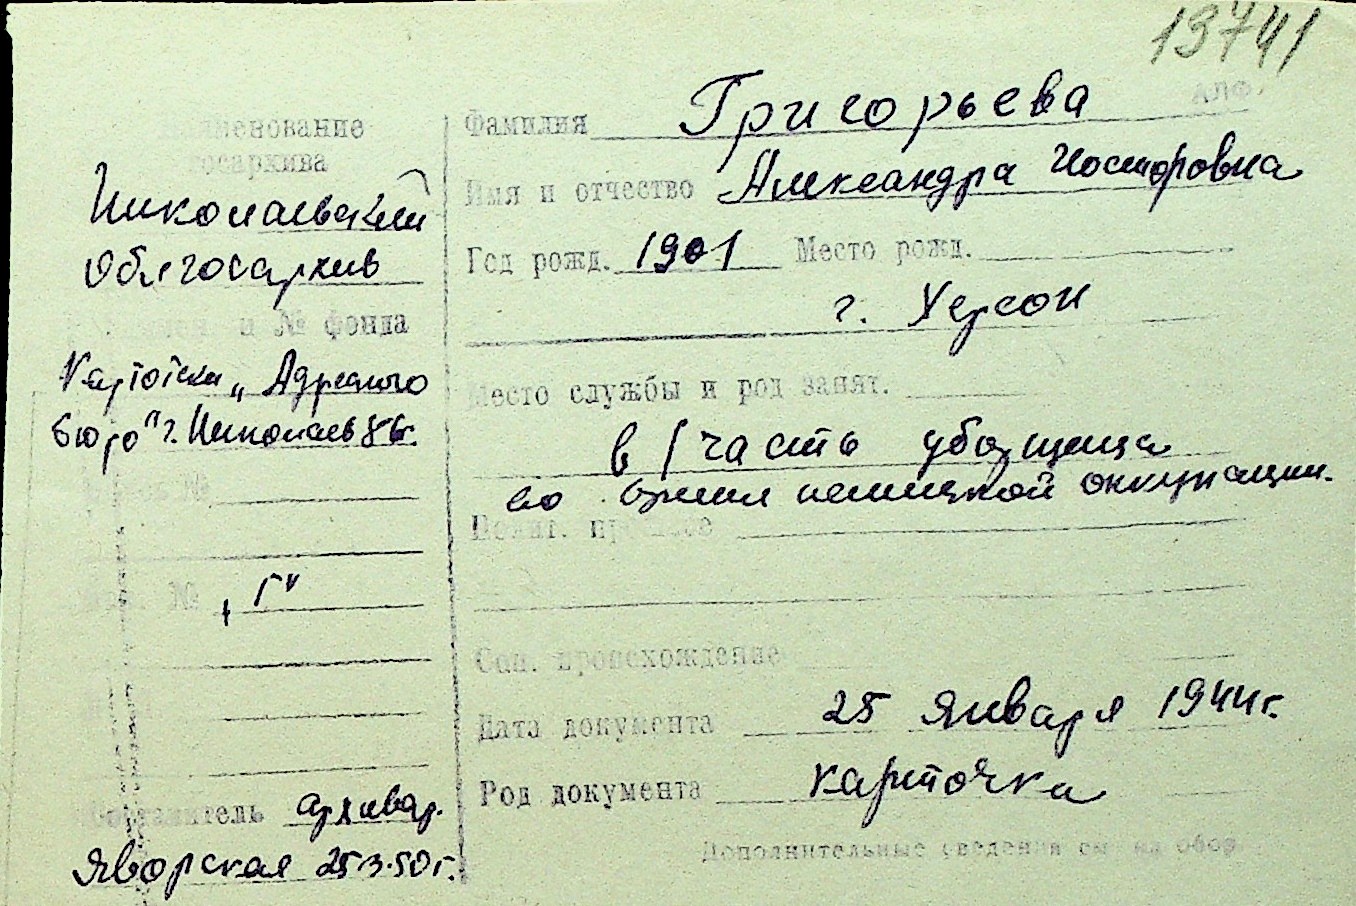 13741
АЛФ.
Наименование
госархива
Николаевский
Облгосархив
и № фонда
Картотека „Адресного
бюро" г. Николаев
Опись №
№ „Г"
Составитель архивар.
Яворская 25.3.50 г.
Фамилия Григорьева
Имя и отчество Александра Несторовна
Год рожд. 1901 Место рожд.
г. Херсон
Место службы и род занят.
в/часть уборщица
во время немецкой оккупации.
Полит. прошлое
Соц. происхождение
Дата документа 25 Января 1944 г.
Род документа карточка
Дополнительные сведения см. на обор.